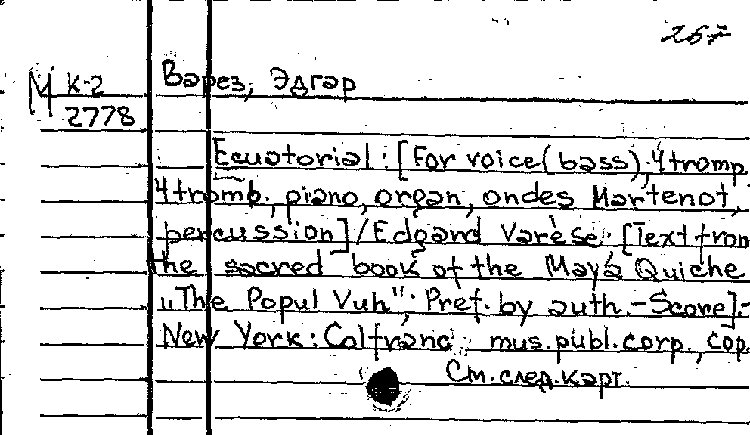 267
М К-2
2778
Варез, Эдгар
Ecuatorial: [For voice (bass), 4 tromp.
4 tromb., piano, organ, ondes Martenot,
percussion] / Edgard Varèse. [Text from
the sacred book of the Maya Quiche
„The Popul Vuh"; Pref. by auth. - Score]. -
New York: Colfranc mus. publ. corp., cop.
См. след. карт.